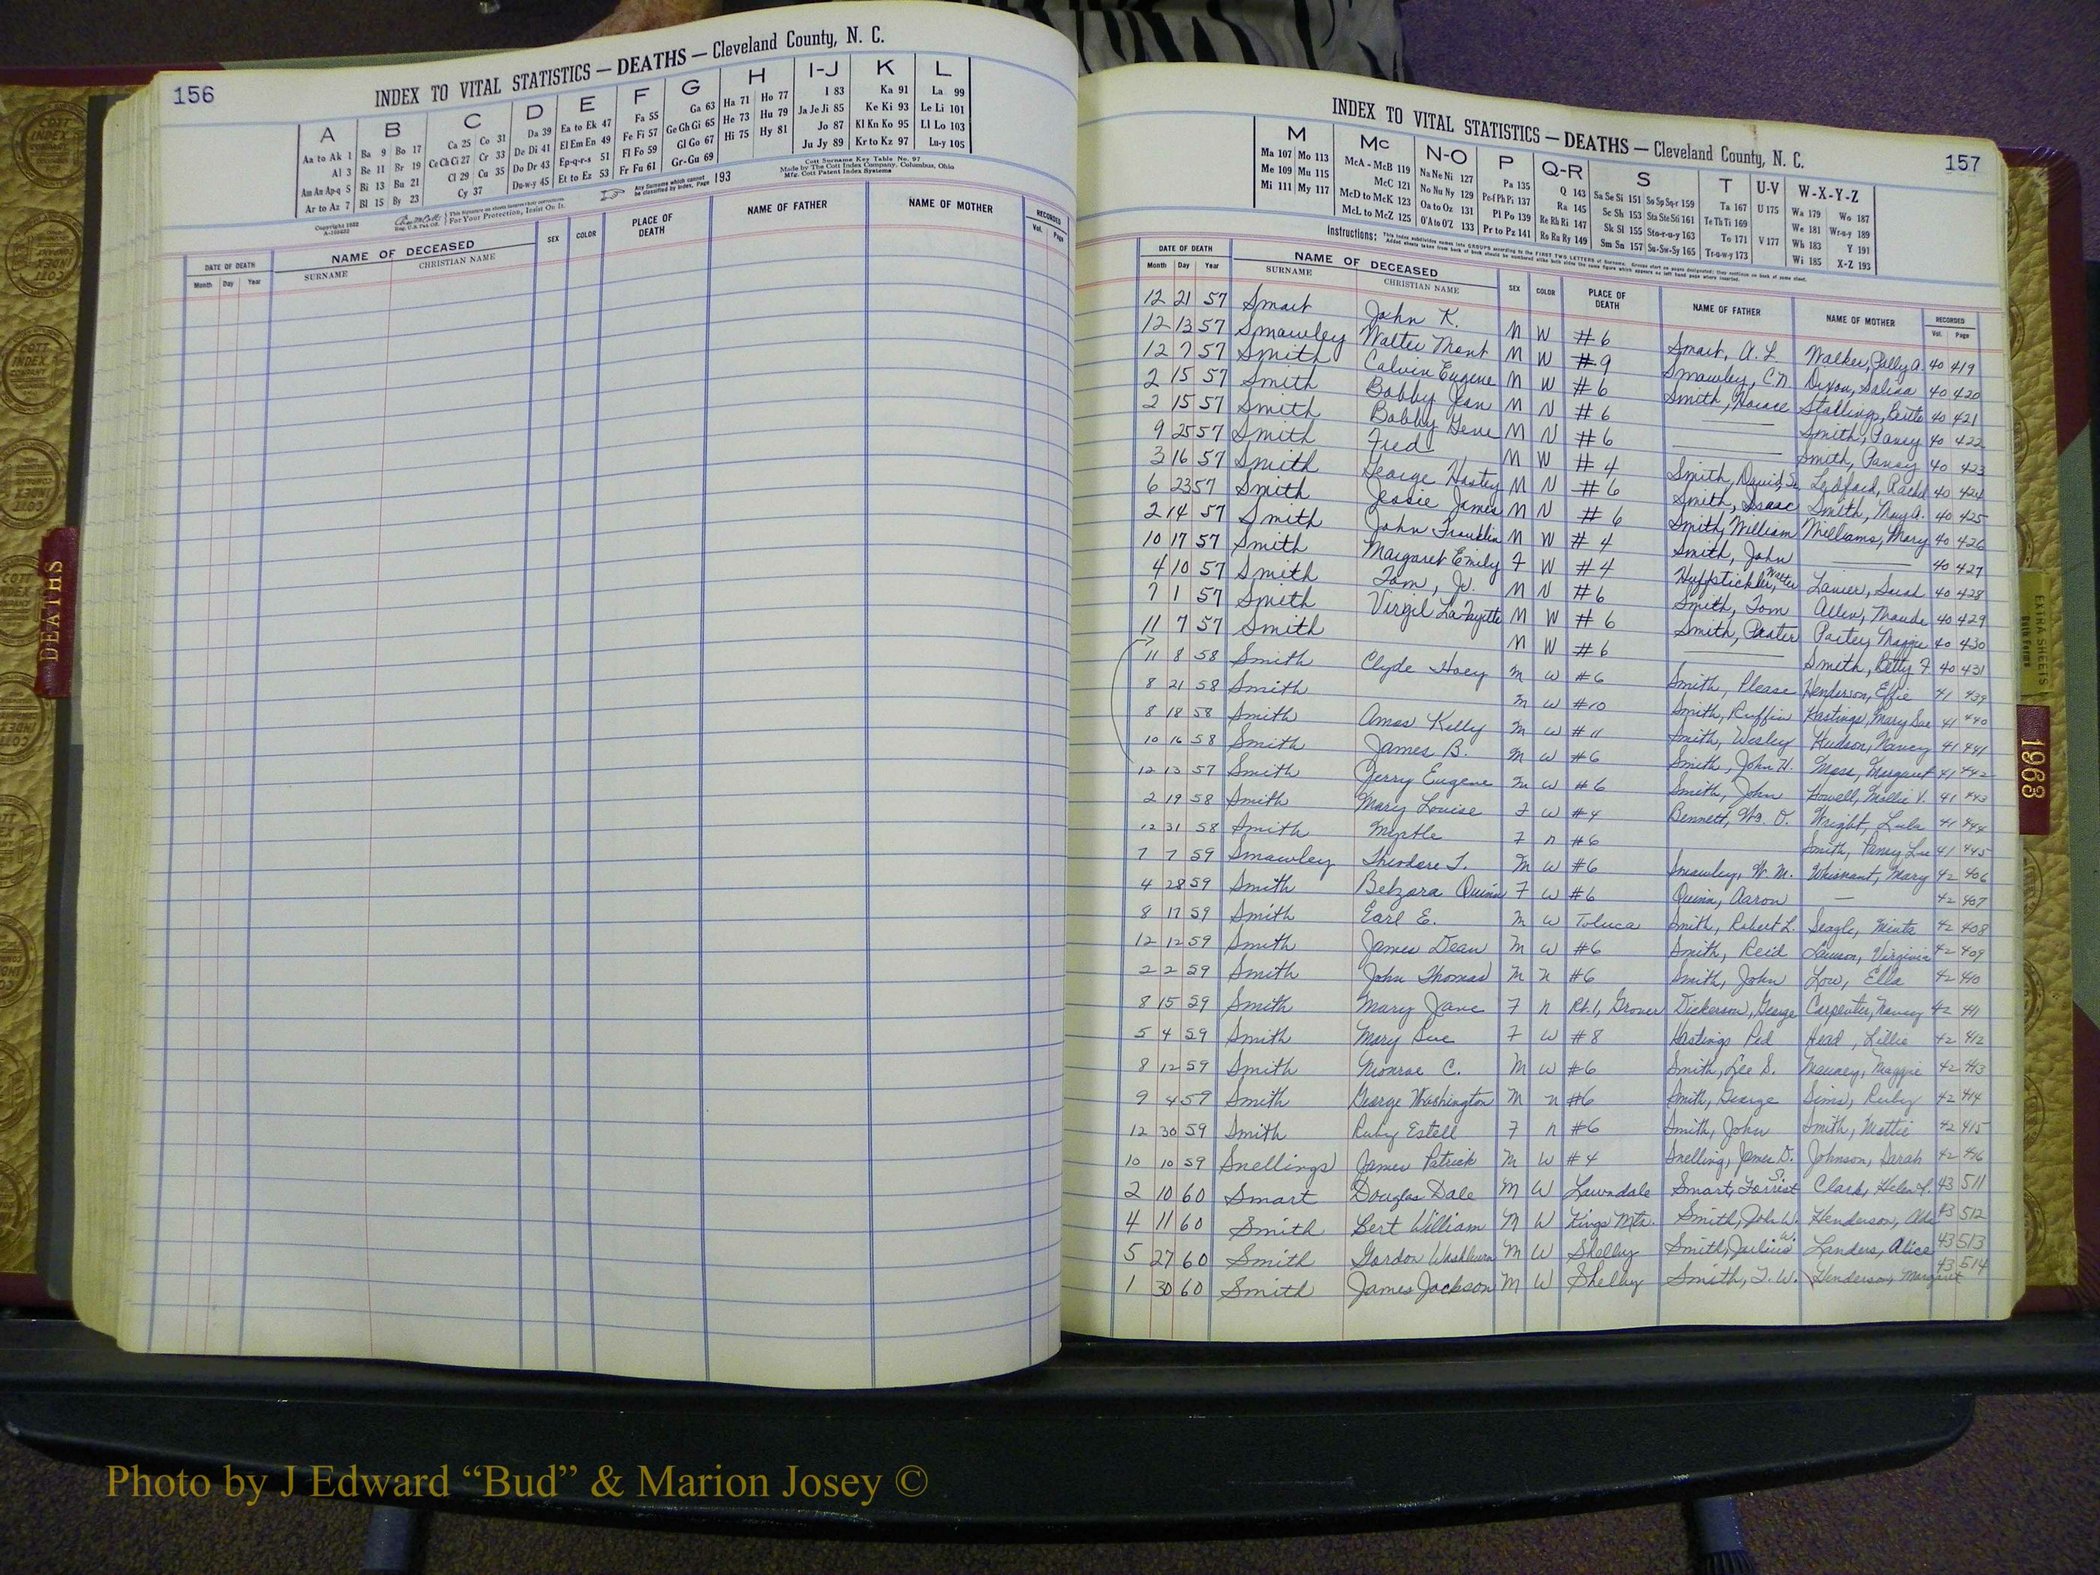 156
INDEX TO VITAL STATISTICS — DEATHS — Cleveland County, N. C.
A B C D E F G H I-J K L
Aa to Ak 1 Ba 9 Bo 17 Ca 25 Co 31 Da 39 Ea to Ek 47 Fa 55 Ga 63 Ha 71 Ho 77 I 83 Ka 91 La 99
Al 3 Be 11 Br 19 Ce Ch Ci 27 Cr 33 De Di 41 El Em En 49 Fe Fi 57 Ge Gh Gi 65 He 73 Hu 79 Ja Je Ji 85 Ke Ki 93 Le Li 101
Am An Ap-q 5 Bi 13 Bu 21 Cl 29 Cu 35 Do Dr 43 Ep-q-r-s 51 Fl Fo 59 Gl Go 67 Hi 75 Hy 81 Jo 87 Kl Kn Ko 95 Ll Lo 103
Ar to Az 7 Bl 15 By 23 Cy 37 Du-w-y 45 Et to Ez 53 Fr Fu 61 Gr-Gu 69 Ju Jy 89 Kr to Kz 97 Lu-y 105
Copyright 1952
A-103622
For Your Protection, Insist On It.
Any Surname which cannot be classified by Index, Page 193
Cott Surname Key Table No. 97
Made by The Cott Index Company, Columbus, Ohio
Mfg. Cott Patent Index Systems
DATE OF DEATH NAME OF DECEASED SEX COLOR PLACE OF DEATH NAME OF FATHER NAME OF MOTHER RECORDED
Month Day Year SURNAME CHRISTIAN NAME Vol. Page
157
INDEX TO VITAL STATISTICS — DEATHS — Cleveland County, N. C.
M Mc N-O P Q-R S T U-V W-X-Y-Z
Ma 107 Mo 113 McA - McB 119 Na Ne Ni 127 Pa 135 Q 143 Sa Se Si 151 So Sp Sq-r 159 Ta 167 U 175 Wa 179 Wo 187
Me 109 Mu 115 McC 121 No Nu Ny 129 Pe-f Ph Pi 137 Ra 145 Sc Sh 153 Sta Ste Sti 161 Te Th Ti 169 We 181 Wr-u-y 189
Mi 111 My 117 McD to McK 123 Oa to Oz 131 Pl Po 139 Re Rh Ri 147 Sk Sl 155 Sto-r-u-y 163 To 171 V 177 Wh 183 Y 191
McL to McZ 125 O'A to O'Z 133 Pr to Pz 141 Ro Ru Ry 149 Sm Sn 157 Su-Sv-Sy 165 Tr-u-w-y 173 Wi 185 X-Z 193
Instructions:
DATE OF DEATH NAME OF DECEASED SEX COLOR PLACE OF DEATH NAME OF FATHER NAME OF MOTHER RECORDED
Month Day Year SURNAME CHRISTIAN NAME Vol. Page
12 21 57 Smart John K. M W #6 Smart, A. L. Walker, Polly A. 40 419
12 13 57 Smawley Walter Mont M W #9 Smawley, C N Dixon, Salina 40 420
12 7 57 Smith Calvin Eugene M W #6 Smith, Horace Stallings, 40 421
2 15 57 Smith Bobby Jean M N #6 Smith, Pansy 40 422
2 15 57 Smith Bobby Gene M N #6 Smith, Pansy 40 423
9 25 57 Smith Fred M W #4 Smith, David, Sr. Ledford, Rachel 40 424
3 16 57 Smith George Hasty M N #6 Smith, Isaac Smith, Mary A. 40 425
6 23 57 Smith Jessie James M N #6 Smith, William Williams, Mary 40 426
2 14 57 Smith John Franklin M W #4 Smith, John 40 427
10 17 57 Smith Margaret Emily F W #4 Huffstickler, Walter Lanier, 40 428
4 10 57 Smith Tom, Jr. M N #6 Smith, Tom Allen, Maude 40 429
7 1 57 Smith Virgil LaFayette M W #6 Smith, Prater Maggie 40 430
11 7 57 Smith M W #6 Smith, Betty F 40 431
11 8 58 Smith Clyde Hoey M W #6 Smith, Please Henderson, Effie 41 439
8 21 58 Smith M W #10 Smith, Ruffin Hastings, Mary Sue 41 440
8 18 58 Smith Amos Kelly M W #11 Smith, Wesley Hudson, Nancy 41 441
10 16 58 Smith James B. M W #6 Smith, John H. Moss, Margaret 41 442
12 13 57 Smith Jerry Eugene M W #6 Smith, John Howell, Mollie V. 41 443
2 19 58 Smith Mary Louise F W #4 Bennett, O. Wright, Lula 41 444
12 31 58 Smith Myrtle F N #6 Smith, Pansy Lee 41 445
7 7 59 Smawley Theodore T. M W #6 Smawley, W. M. Whisnant, Mary 42 406
4 28 59 Smith Belzora Quinn F W #6 Quinn, Aaron — 42 407
8 17 59 Smith Earl E. M W Toluca Smith, Robert L. Seagle, Minta 42 408
12 12 59 Smith James Dean M W #6 Smith, Reid Lawson, Virginia 42 409
2 2 59 Smith John Thomas M N #6 Smith, John Low, Ella 42 410
8 15 59 Smith Mary Jane F N Rt. 1, Grover Dickerson, George Carpenter, Nancy 42 411
5 4 59 Smith Mary Sue F W #8 Hastings Head, Lillie 42 412
8 12 59 Smith Monroe C. M W #6 Smith, Lee S. Mauney, Maggie 42 413
9 4 59 Smith George Washington M N #6 Smith, George Sims, Ruby 42 414
12 30 59 Smith Ruby Estell F N #6 Smith, John Smith, Mattie 42 415
10 10 59 Snellings James Patrick M W #4 Snelling, James D. Johnson, Sarah 42 416
2 10 60 Smart Douglas Dale M W Lawndale Smart, Forrest Sr. Clark, Helen L. 43 511
4 11 60 Smith Bert William M W Kings Mtn. Smith, John W. Henderson, 43 512
5 27 60 Smith Gordon Washburn M W Shelby Smith, Julius W. Landers, Alice 43 513
1 30 60 Smith James Jackson M W Shelby Smith, T. W. Henderson, Margaret 43 514
DEATHS
EXTRA SHEETS
1963
Photo by J Edward “Bud” & Marion Josey ©